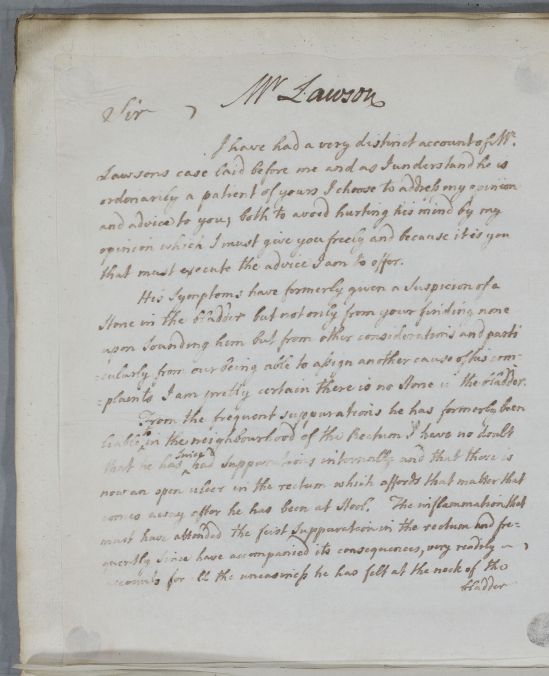 Mr Lawson
Sir,
I have had a very distinct account of Mr.
Lawsons case laid before me and as I understand he is
ordinarily a patient of yours I choose to address my opinion
and advice to you; both to avoid hurting his mind by my
opinion which I must give you freely and because it is you
that must execute the advice I am to offer.
His Symptoms have formerly given a Suspicion of a
Stone in the bladder but not only from your finding none
upon Sounding him but from other considerations and parti
=cularly from our being able to assign another cause of his com-
=plaints I am pretty certain there is no Stone in the bladder.
From the frequent Suppurations he has formerly been
liable to in the neighbourhood of the Rectum I have no doubt
that he has had Suppurations internally and that there is
now an open ulcer in the rectum which affords that matter that
comes away after he has been at Stool. The inflammation that
must have attended the first Suppuration in the rectum and fre=
quently Since have accompanied its consequences, very readily
accounts for all the uneasiness he has felt at the neck of the
bladder